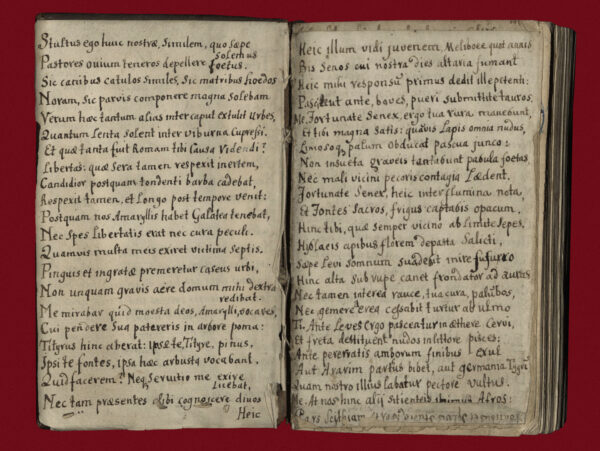 Stultus ego huic nostræ Similem, quo sæpe
Solemus
Pastores ovium teneros depellere fœtus.
Sic canibus catulos Similes, Sic matribus hœdos
Noram, Sic parvis componere magna Solebam
Verum hæc tantum alias inter caput extulit Urbes,
Quantum Lenta Solent inter viburna Cupressi.
Et quæ tanta fuit Romam tibi Causa Videndi?
Libertas: quæ Sera tamen respexit inertem,
Candidior postquam tondenti barba cadebat,
Respexit tamen, et Longo post tempore venit:
Postquam nos Amaryllis habet Galatea tenebat,
Nec Spes Libertatis erat nec cura peculi.
Quamvis multa meis exiret victima Septis.
Pinguis et ingratæ premeretur caseus urbi,
Non unquam gravis aere domum mihi dextra
redibat.
Me mirabar quid moesta deos, Amarylli, vocares,
Cui pendere Sua patereris in arbore poma:
Tityrus hinc aberat: ipsæ te, Tityre, pinus,
Ipsi te fontes, ipsa hæc arbusta vocabant.
Quid facerem? Neq Servitio me exire
Licebat,
Nec tam præsentes alibi cognoscere divos
Heic
Heic illum vidi juvenem, Meliboee quot annis
Bis Senos cui nostra dies altaria fumant
Heic mihi responsū primus dedit ille petenti:
Pascite ut ante, boves, pueri submittite tauros.
Fortunate Senex, ergo tua rura manebunt,
Et tibi magna Satis: quāvis Lapis omnia nudus,
Limosoq palum Obducat pascua junco:
Non insueta graveis tentabunt pabula foetas
Nec mali vicini pecoris contagia Lædent.
Fortunate Senex, heic inter flumina nota,
Et Fontes Sacros, frigus captabis opacum.
Hinc tibi, quæ semper vicino ab Limite Sepes,
Hyblaeis apibus florem depasta Salicti,
Sæpe Levi Somnum Suadebit inire Susurro
Hinc alta Sub rupe canet frondator ad auras
Nec tamen interea raucæ, tua cura, palūbes,
Nec gemere aerea cessabit turtur ab ulmo
Ti. Ante Leves Ergo pascentur in æthere Cervi,
Et freta destituent nudos in littore pisces:
Ante pererratis amborum finibus Exul
Aut Ararim partus bibet, aut germania Tygrī
Quam nostro illius labatur pectore vultus.
Me. At nos hinc alij sitienteis Afros:
Pars Scythiam